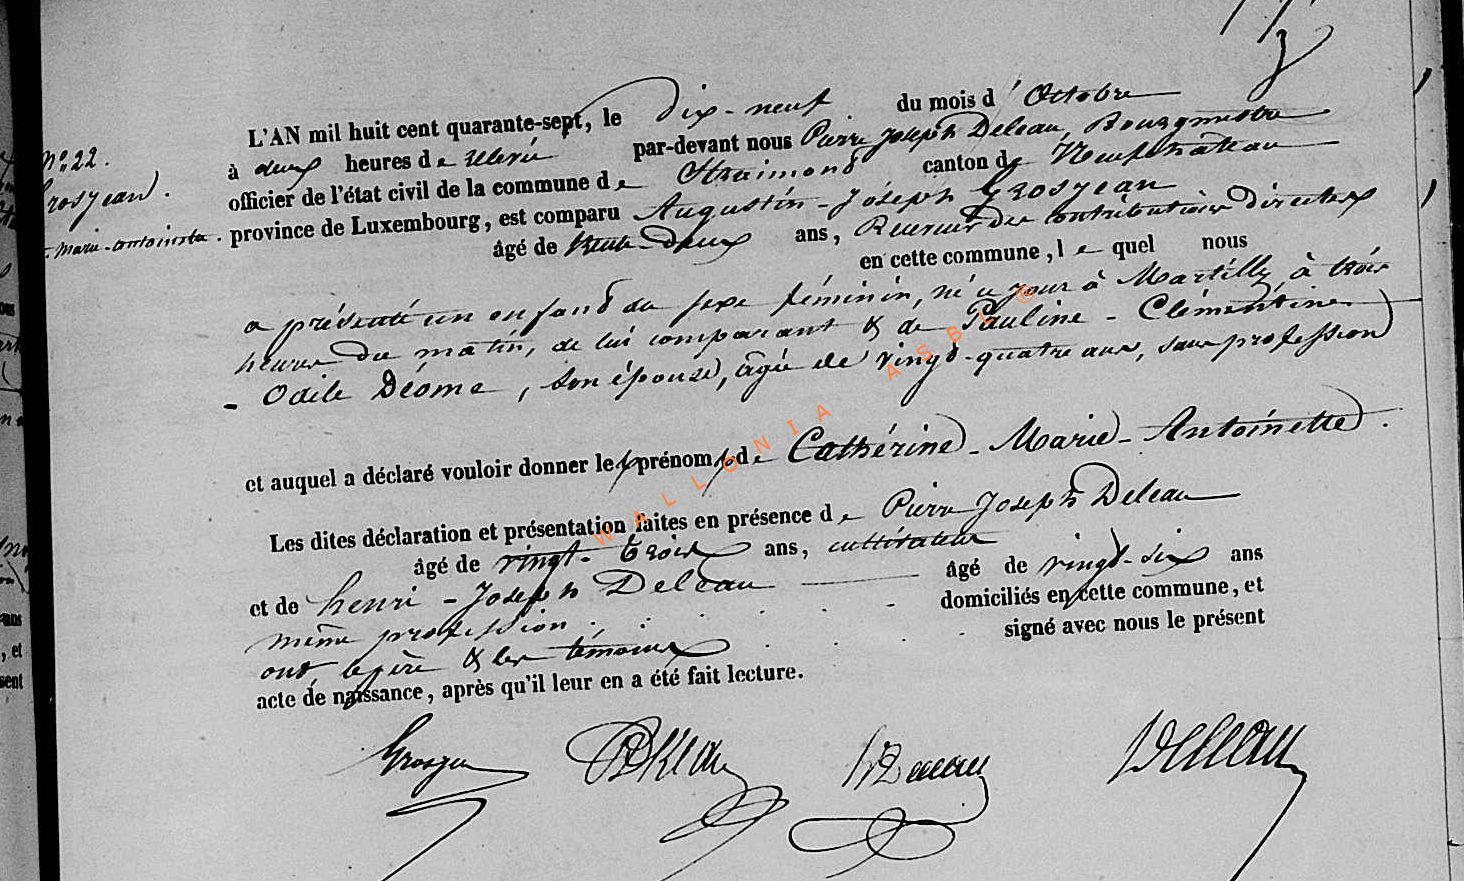 N° 22.
Grosjean.
Marie-Antoinette.
L'AN mil huit cent quarante-sept, le dix-neuf du mois d'Octobre
à deux heures de relevée par-devant nous Pierre Joseph Deleau, Bourgmestre
officier de l'état civil de la commune de Straimont canton de Neufchâteau
province de Luxembourg, est comparu Augustin-Joseph Grosjean
âgé de trente-deux ans, Receveur des contributions directes
en cette commune, lequel nous
a présenté un enfant du sexe féminin, né ce jour à Martilly à trois
heures du matin, de lui comparant & de Pauline-Clémentine
- Odile Déome, son épouse, âgée de vingt-quatre ans, sans profession
et auquel a déclaré vouloir donner les prénoms de Cathérine-Marie-Antoinette.
Les dites déclaration et présentation faites en présence de Pierre Joseph Deleau
âgé de vingt-trois ans, cultivateur
et de henri-Joseph Deleau âgé de vingt-six ans
même profession. domiciliés en cette commune, et
ont, le père & les témoins signé avec nous le présent
acte de naissance, après qu'il leur en a été fait lecture.
Grosjean Deleau
WALLONIA ASBL ©